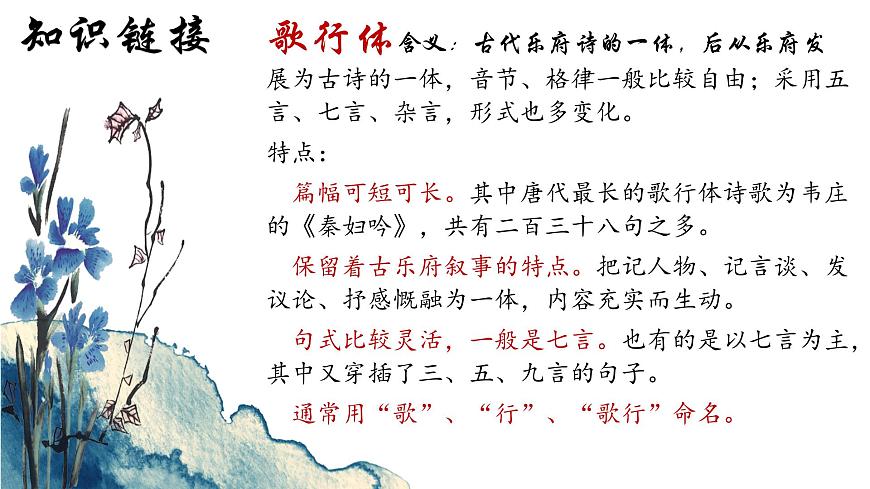 知识链接
歌行体含义：古代乐府诗的一体，后从乐府发
展为古诗的一体，音节、格律一般比较自由；采用五
言、七言、杂言，形式也多变化。
特点：
篇幅可短可长。其中唐代最长的歌行体诗歌为韦庄
的《秦妇吟》，共有二百三十八句之多。
保留着古乐府叙事的特点。把记人物、记言谈、发
议论、抒感慨融为一体，内容充实而生动。
句式比较灵活，一般是七言。也有的是以七言为主，
其中又穿插了三、五、九言的句子。
通常用“歌”、“行”、“歌行”命名。